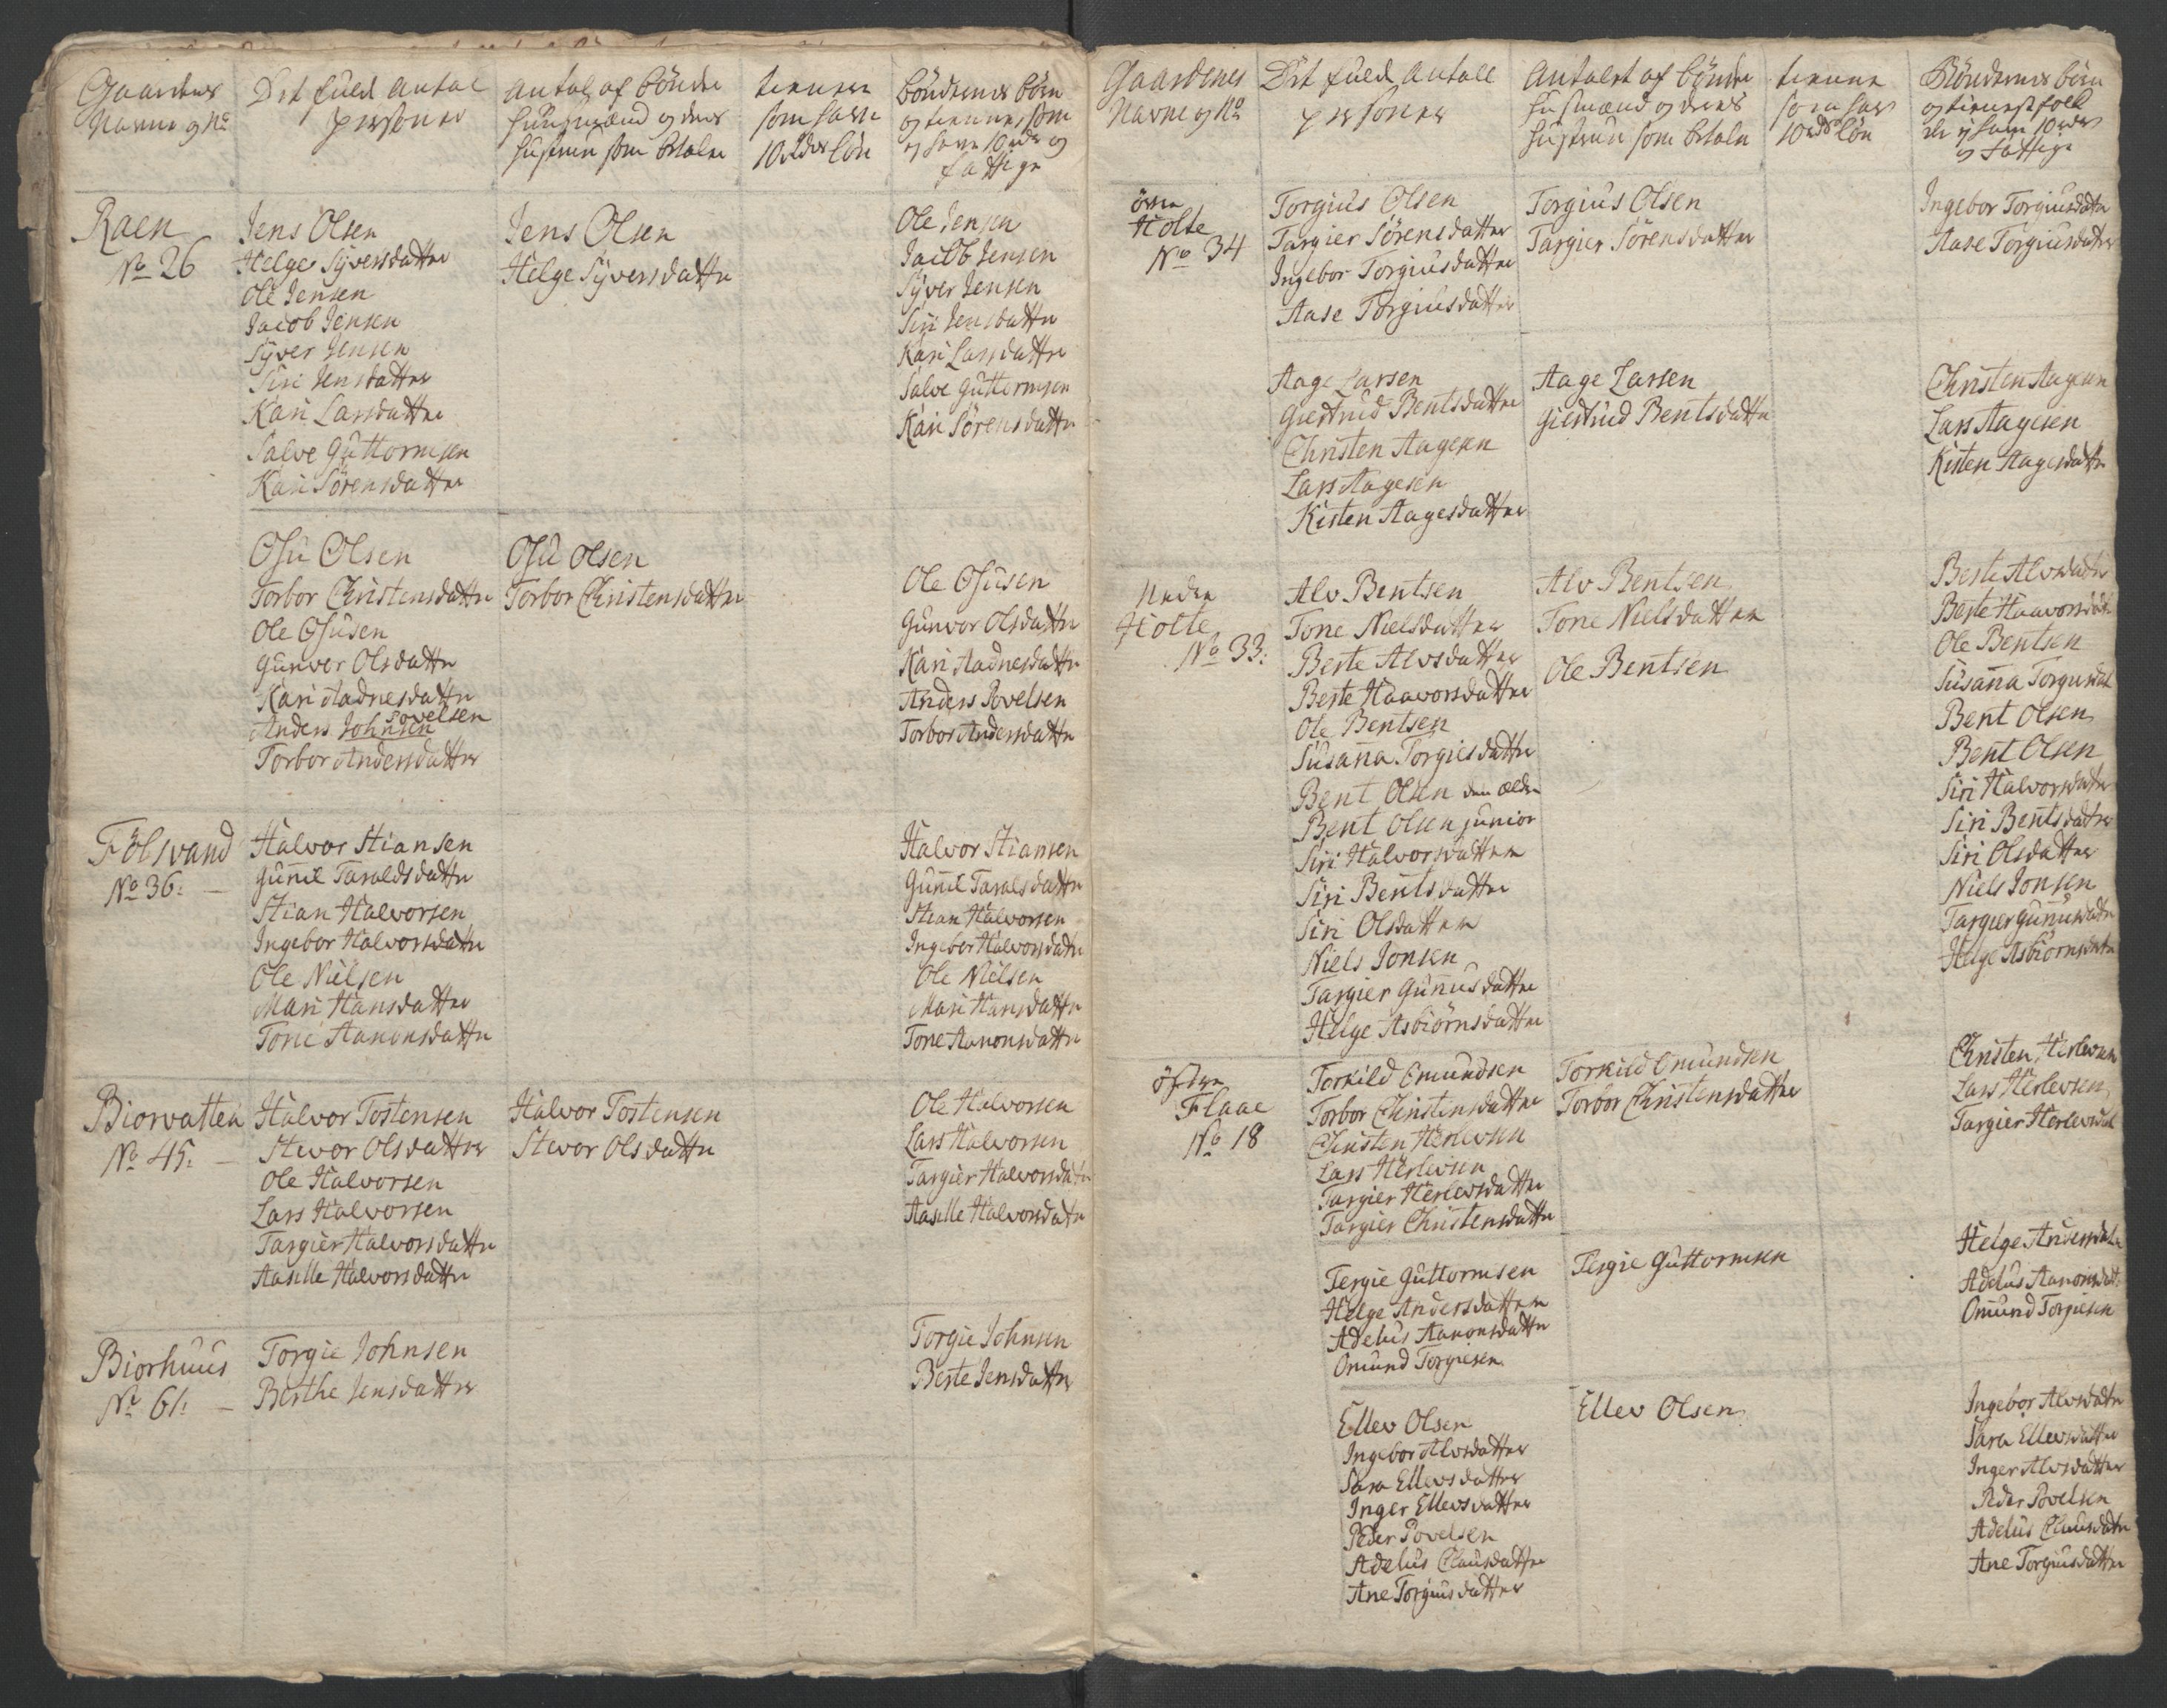 Gaardenes
Navne og No
Det fuld Antal
personer
Antal af bönder
huusmænd og deres
hustruer som betale
tienere
som have
10 rdr lön
böndernes börn
og tienere, som
ej have 10 rdr og
fattige
Raen
No 26
Jens Olsen
Helge Syversdatter
Ole Jensen
Jacob Jensen
Syver Jensen
Siri Jensdatter
Kari Larsdatter
Salve Guttormsen
Kari Sörensdatter
Jens Olsen
Helge Syversdatter
Ole Jensen
Jacob Jensen
Syver Jensen
Siri Jensdatter
Kari Larsdatter
Salve Guttormsen
Kari Sörensdatter
Osu Olsen
Torbor Christensdatter
Ole Osusen
Gunvor Olsdatter
Kari Aadnesdatter
Povelsen
Anders Johnsen
Torbor Andersdatter
Osu Olsen
Torbor Christensdatter
Ole Osusen
Gunvor Olsdatter
Kari Aadnesdatter
Anders Povelsen
Torbor Andersdatter
Fölsvand
No 36. —
Halvor Stiansen
Gunnil Taraldsdatter
Stian Halvorsen
Ingebor Halvorsdatter
Ole Nielsen
Mari Hansdatter
Tone Aanonsdatter
Halvor Stiansen
Gunnil Taralsdatter
Stian Halvorsen
Ingebor Halvorsdatter
Ole Nielsen
Mari Hansdatter
Tone Aanonsdatter
Biorvatten
No 45. —
Halvor Tostensen
Stevor Olsdatter
Ole Halvorsen
Lars Halvorsen
Targier Halvorsdatter
Aaselle Halvorsdatter
Halvor Tostensen
Stevor Olsdatter
Ole Halvorsen
Lars Halvorsen
Targier Halvorsdatter
Aaselle Halvorsdatter
Biorhuus
No 61. —
Torgie Johnsen
Berthe Jensdatter
Torgie Johnsen
Berte Jensdatter
Gaardenes
Navne og No
Det fuld Antall
personer
Antalet af bönder
huusmænd og deres
hustruer som betale
tienere
som have
10 rdr lön
Böndernes börn
og tienestfolk
de ej have 10 rdr
og fattige
övre
Holte
No 34
Torgius Olsen
Targier Sörensdatter
Ingebor Torgiusdatter
Aase Torgiusdatter
Torgius Olsen
Targier Sörensdatter
Ingebor Torgiusdatter
Aase Torgiusdatter
Aage Larsen
Giertrud Bentsdatter
Christen Aagesen
Lars Aagesen
Kisten Aagesdatter
Aage Larsen
Giertrud Bentsdatter
Christen Aagesen
Lars Aagesen
Kisten Aagesdatter
Neder
Holte
No 33.
Alv Bentsen
Tone Nielsdatter
Berte Alvsdatter
Berte Haavorsdatter
Ole Bentsen
Susanna Torgiesdatter
Bent Olsen den ældre
Bent Olsen junior
Siri Halvorsdatter
Siri Bentsdatter
Siri Olsdatter
Niels Jonsen
Targier Gunnusdatter
Helge Asbiörnsdatter
Alv Bentsen
Tone Nielsdatter
Ole Bentsen
Berte Alvsdatter
Berte Haavorsdatter
Ole Bentsen
Susanna Torgiusdat
Bent Olsen
Bent Olsen
Siri Halvorsdatter
Siri Bentsdatter
Siri Olsdatter
Niels Jonsen
Targier Gunnusdatter
Helge Asbiörnsdatter
östre
Flaae
No 18
Torkild Omundsen
Torbor Christensdatter
Christen Herlevsen
Lars Herlevsen
Targier Herlevsdatter
Targier Christensdatter
Torkild Omundsen
Torbor Christensdatter
Christen Herlevsen
Lars Herlevsen
Targier Herlevsdat
Tergie Guttormsen
Helge Andersdatter
Adelus Aanonsdatter
Omund Torgiesen
Tergie Guttormsen
Helge Andersdatter
Adelus Aanonsdat
Omund Torgiesen
Ellev Olsen
Ingebor Alvsdatter
Sara Ellevsdatter
Inger Ellevsdatter
Peder Povelsen
Adelus Clausdatter
Ane Torgiusdatter
Ellev Olsen
Ingebor Alvsdatter
Sara Ellevsdatter
Inger Alvsdatter
Peder Povelsen
Adelus Clausdatter
Ane Torgiusdatter